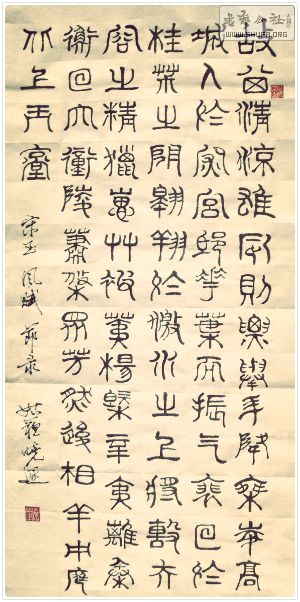 故其清涼雄風則飄舉升降乘凌高
城入於深宮邸華葉而振氣裴回於
桂椒之間翱翔於激水之上將擊夫
容之精獵蕙草被荑楊概辛夷離秦
衡回穴衝陵蕭條眾芳然後相羊中庭
北上玉堂
宋玉風賦節錄
WWW.SHUFA.ORG